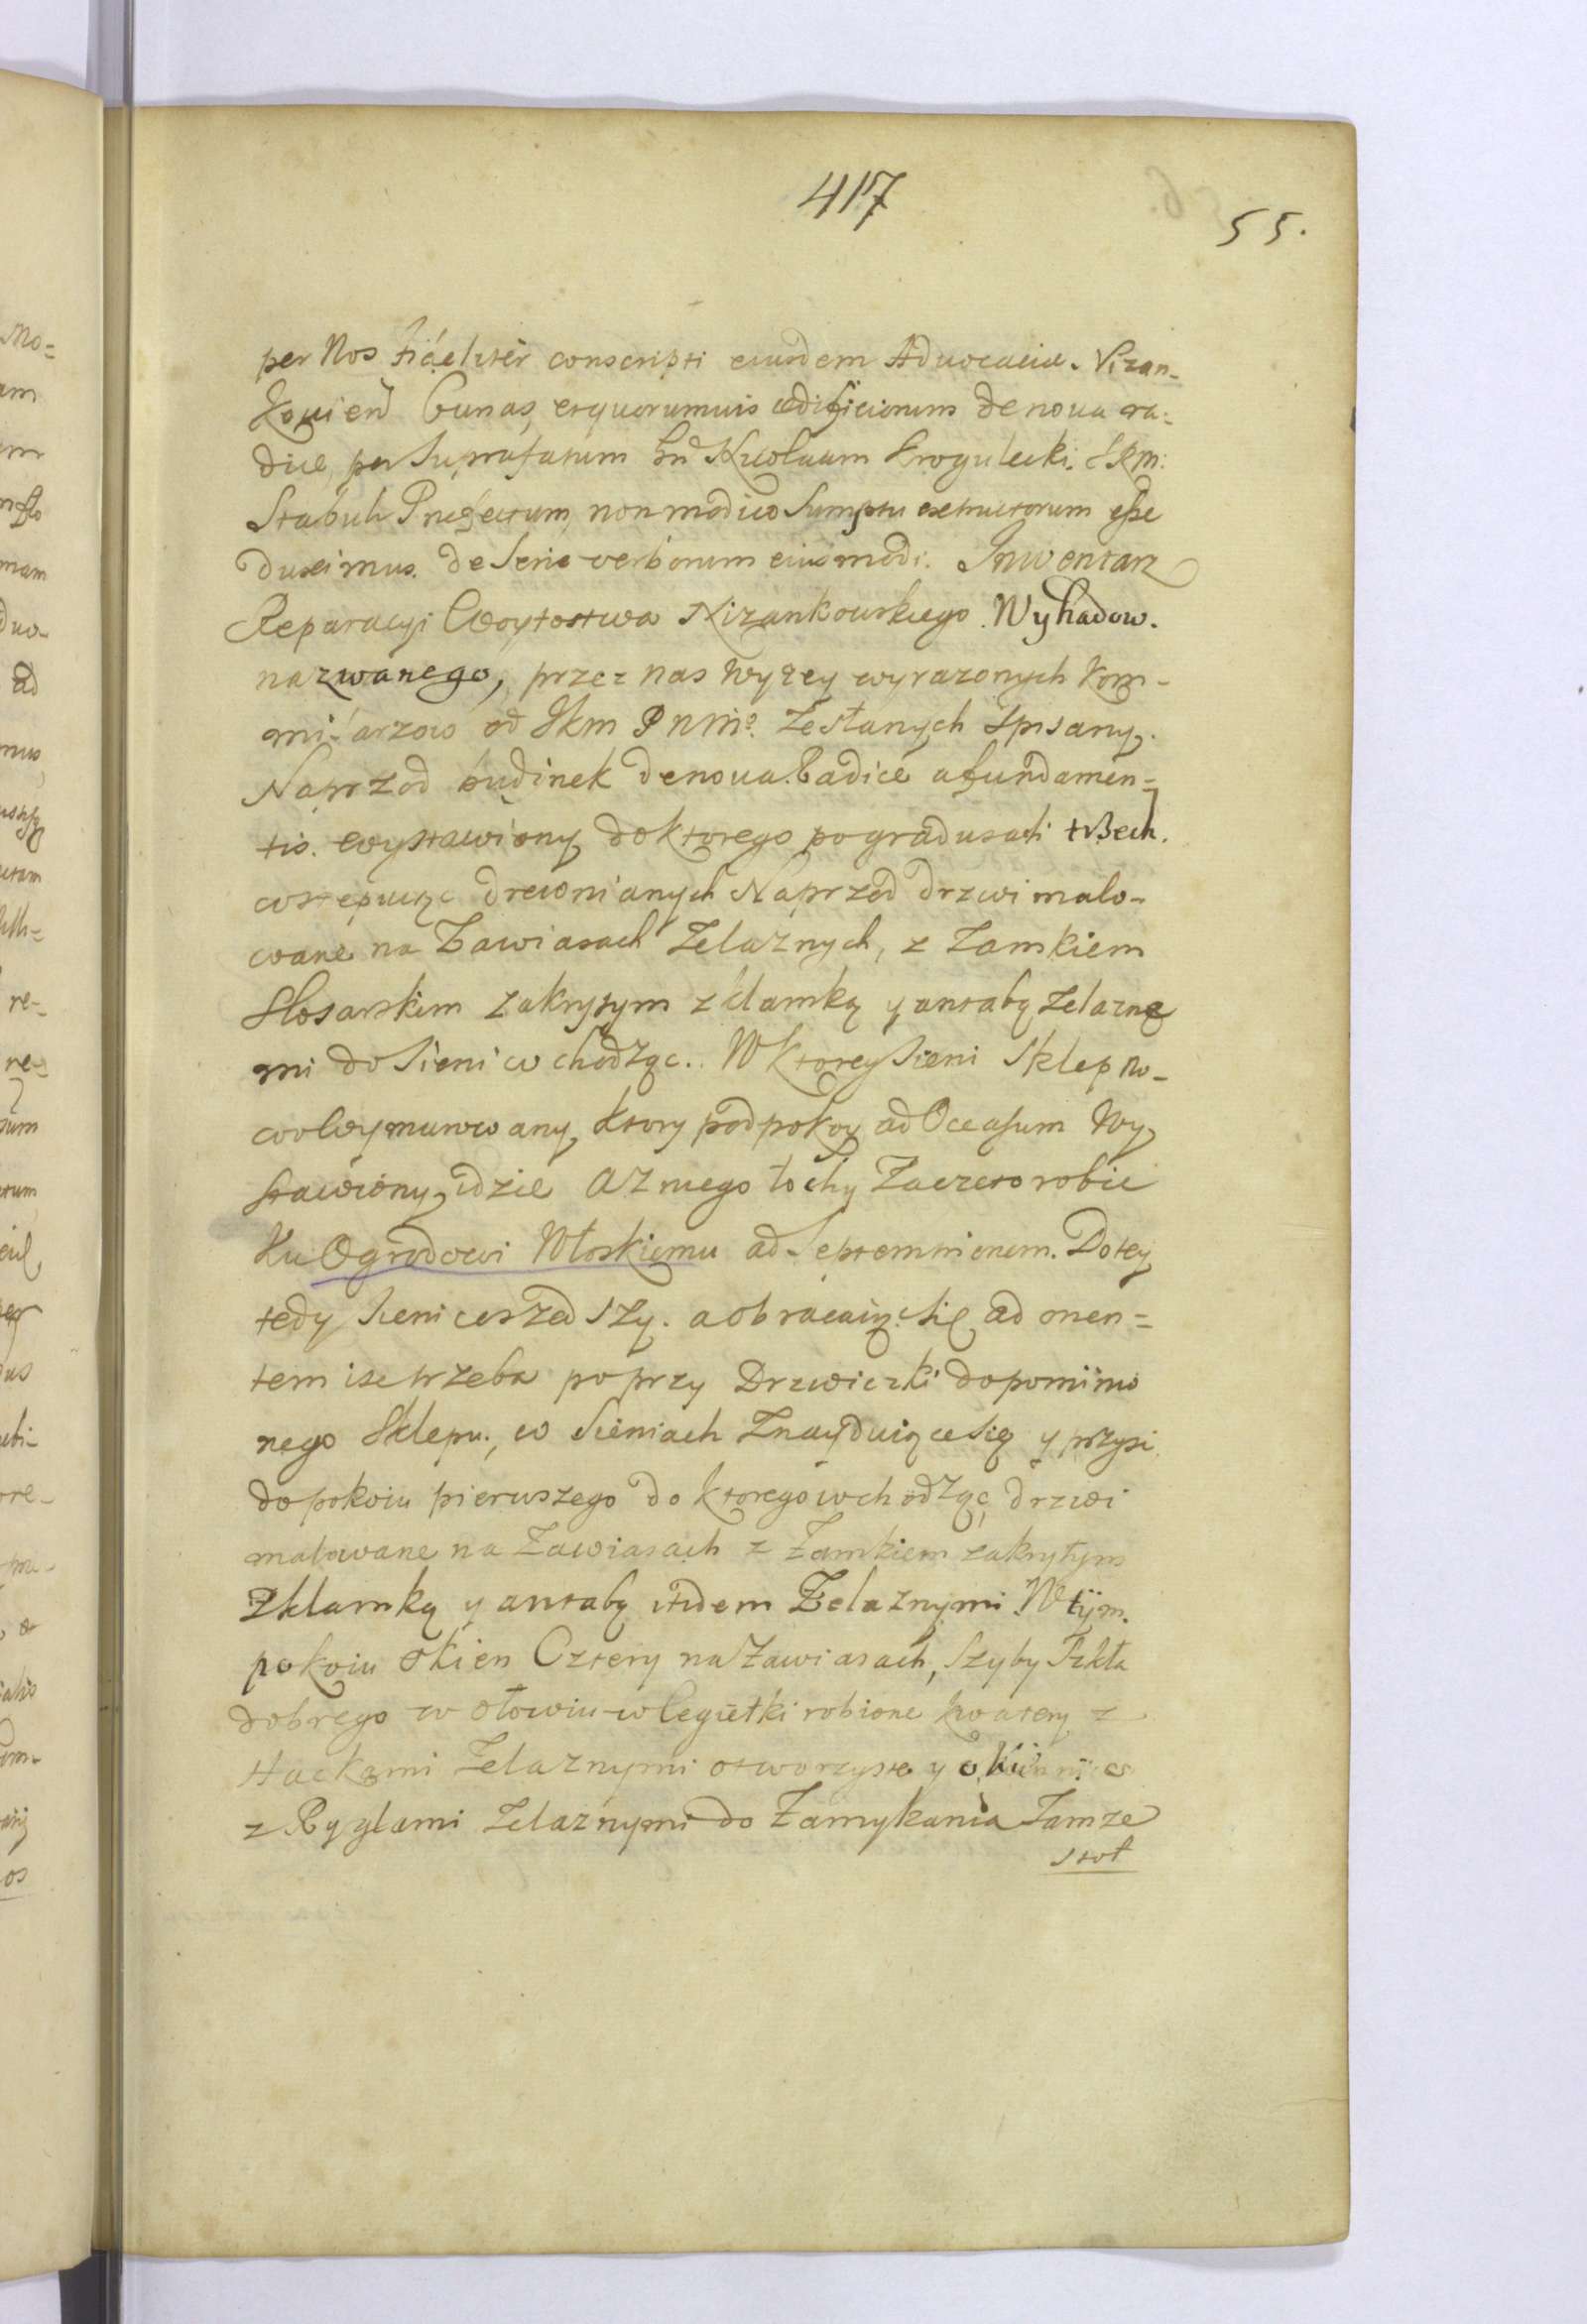 417
55.
per Nos fideliter conscripti eiusdem Advocatiæ. Nizan-
kovien̄ Curias, et quorumvis ædificiorum de noua ra:
dice, per Supra fatum Gn̄d Nicolaum Krogulecki. JKm:
Stabuli Præfectum, non modico Sumptu extructorum esse
duximus. de Serie verborum eiusmodi. Inwentarz
Reparacyi Woytostwa Nizankowskiego. Wyhadow.
nazwanego, przez nas wyżey wyrazonych Kom-
mi-arzow od JKm P N Mº. Zesłanych spisany.
Naprzod budinek de noua Radice a fundamen=
tis. wystawiony do ktorego po gradusach trzech.
wstępuiąc drewnianych Naprzod drzwi malo-
wane na Zawiasach Zelaznych, z Zamkiem
Slosarskim zakrytym z klamką y antabą zelazne
mi do Sieni wchodząc.. W ktorey Sieni Sklep no-
wo wymurowany, ktory pod pokoy ad Occasum wy
stawiony, idzie a z niego lochy Zaczęto robic
Ku Ogrodowi Włoskiemu ad Septemtrionem. Do tey
tedy Sieni wszedszy. a obracaiąc się ad orien=
tem isc trzeba poprzy Drzwiczki do pomimo
nego Sklepu., w Sieniach Znayduiące się y przysc
do pokoiu pierwszego do ktorego wchodząc drzwi
malowane na Zawiasach z Zamkiem zakrytym
z klamką y antabą itidem Zelaznymi. W tÿm.
pokoiu okien Cztery na Zawiasach, Szyby Szkła
dobrego w ołowiu w Cegiełki robione kwatery z
Haczkami Zelaznymi otworzyste y okiennice
z Ryglami Zelaznymi do Zamykania Tamze
stoł